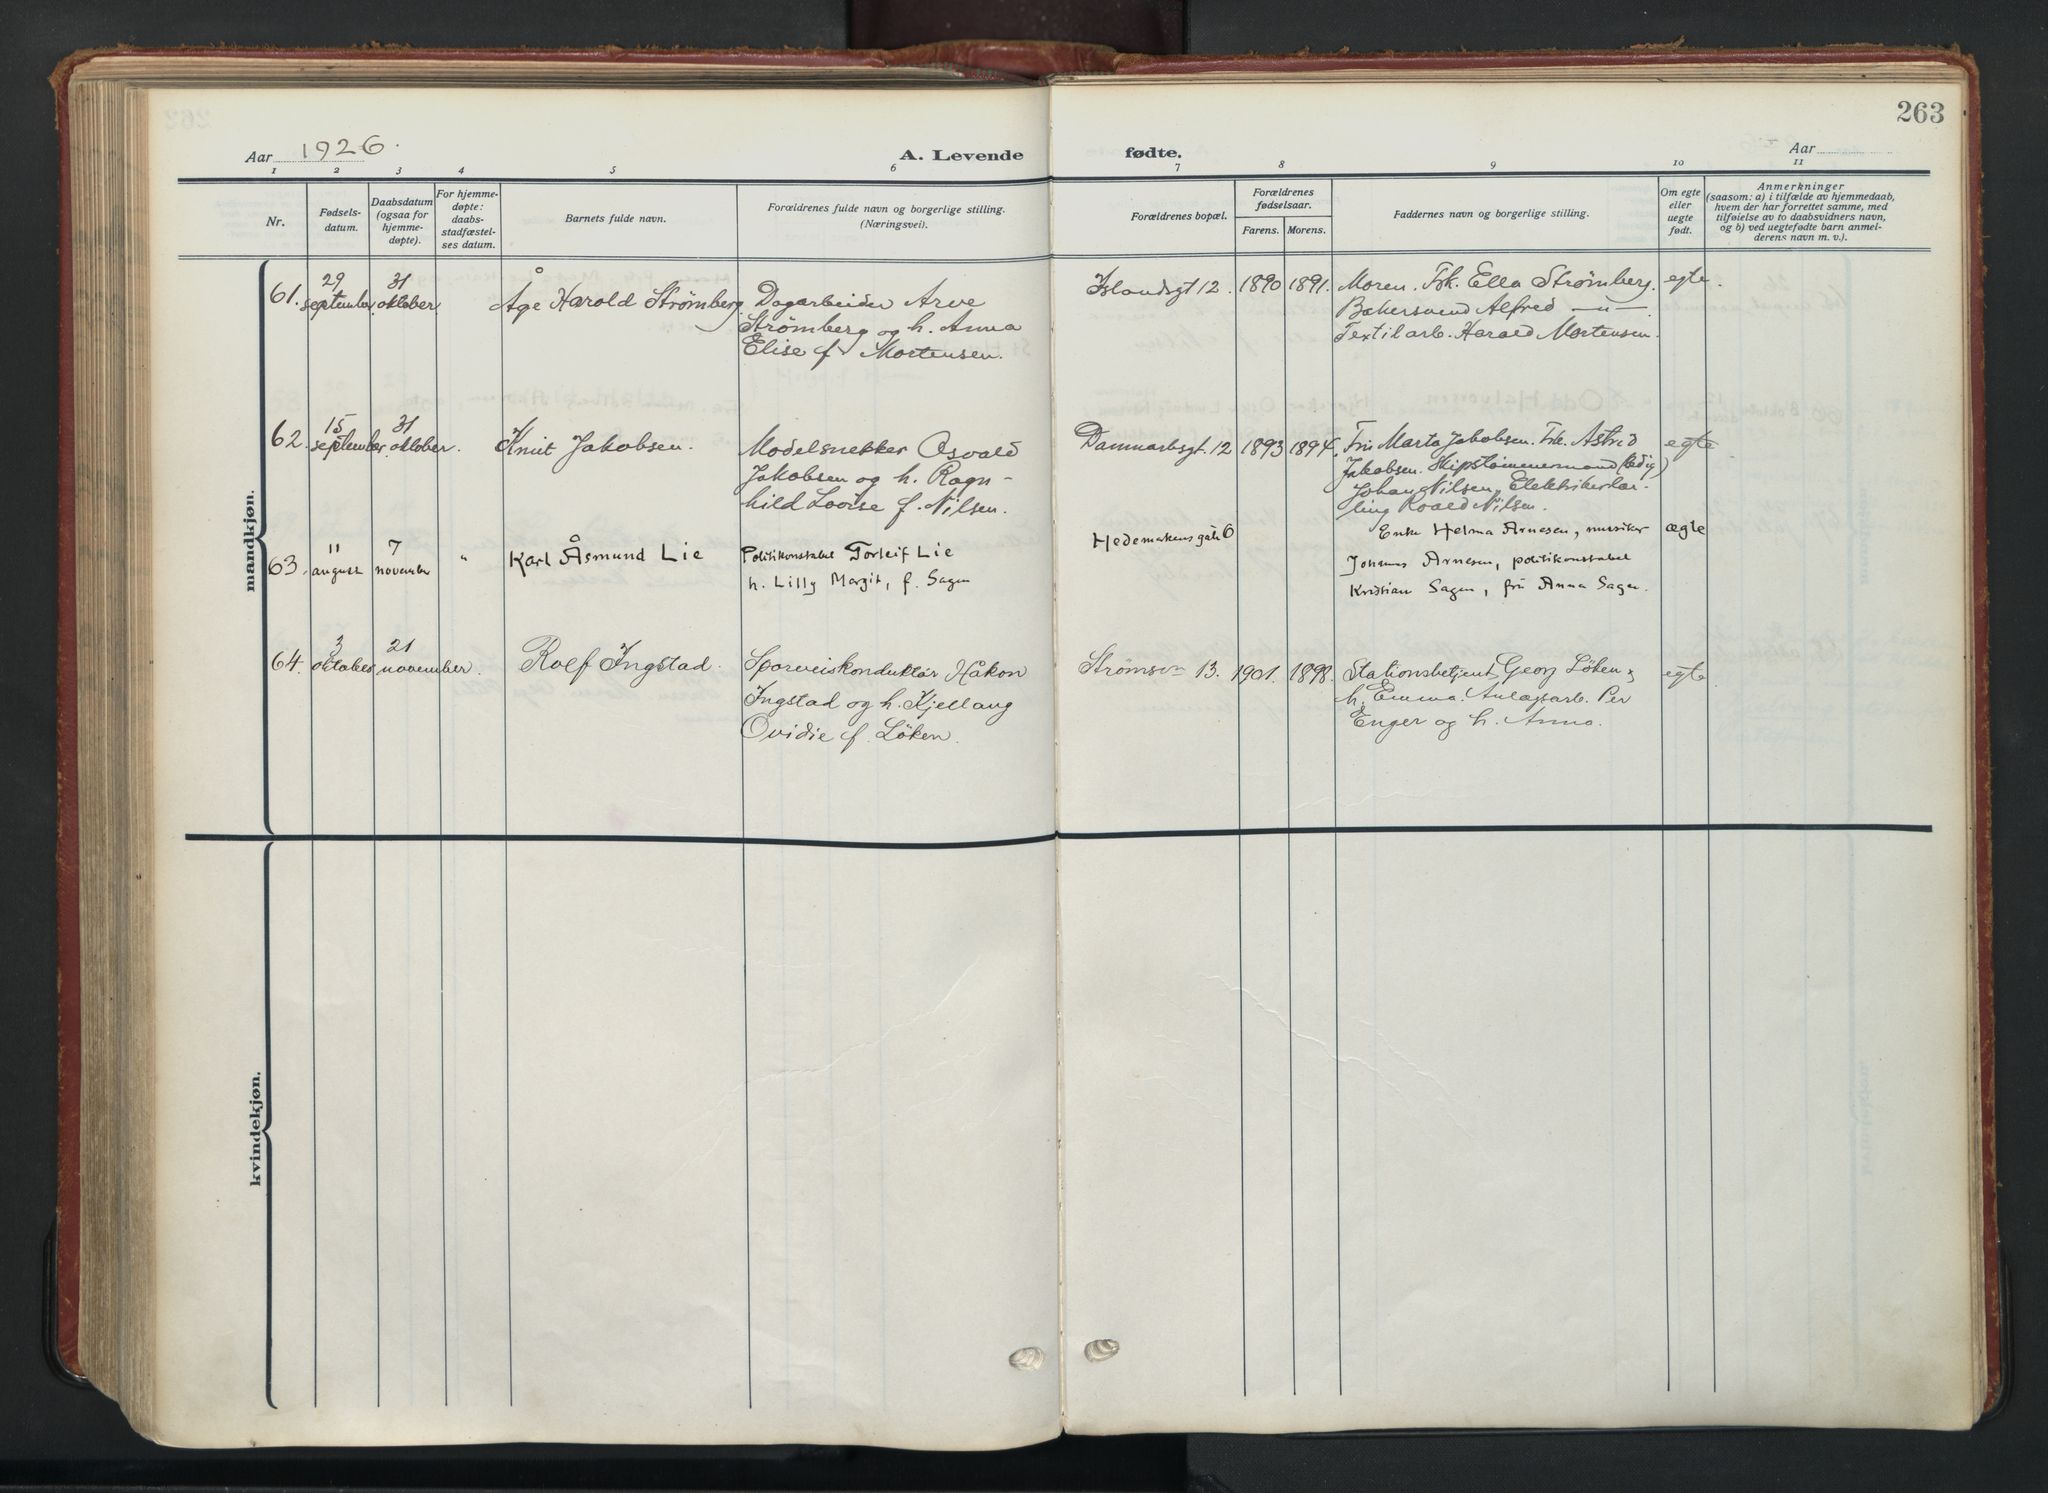 263
Aar 1926.
A. Levende
fødte.
Aar
1 2 3 4 5 6 7 8 9 10 11
Nr.
Fødsels-
datum.
Daabsdatum
(ogsaa for
hjemme-
døpte).
For hjemme-
døpte:
daabs-
stadfæstel-
ses datum.
Barnets fulde navn.
Forældrenes fulde navn og borgerlige stilling.
(Næringsvei).
Forældrenes bopæl.
Forældrenes
fødselsaar.
Farens. Morens.
Faddernes navn og borgerlige stilling.
Om egte
eller
uegte
født.
Anmerkninger
(saasom: a) i tilfælde av hjemmedaab,
hvem der har forrettet samme, med
tilføielse av to daabsvidners navn,
og b) ved uegtefødte barn anmel-
derens navn m. v.).
mandkjøn.
61. 29 september. 31 oktober. Åge Harold Strømberg. Dagarbeider Arve
Strømberg og h. Anna
Elise f. Mortensen.
Islandsgt 12. 1890 1891. Moren. Frk. Ella Strømberg. egte.
Bakersvend Alfred —„—
Textilarb. Harald Mortensen.
62. 15 september. 31 oktober. Knut Jakobsen. Modelsnekker Osvald
Jakobsen og h. Ragn-
hild Lovise f. Nilsen.
Danmarksgt. 12 1893 1894. Fru Marta Jakobsen. Frk. Astrid egte
Jakobsen. Skipstømmermand (ledig)
Johan Nilsen, Elektrikerlær-
ling Roald Nilsen.
63. 11 august 7 november „ Karl Åsmund Lie Politikonstabel Torleif Lie
h. Lilly Margit, f. Sagen
Hedemarkens gate 6 Enke Helma Arnesen, musiker ægte
Johannes Arnesen, politikonstabel
Kristian Sagen, fru Anna Sagen.
64. 3 oktober 21 november. Rolf Ingstad. Sporveiskonduktør Håkon
Ingstad og h. Kjellaug
Ovidie f. Løken.
Strømsvn 13. 1901. 1898. Stationsbetjent Georg Løken & egte
h. Emma. Anlægsarb. Per
Enger og h. Anna.
kvindekjøn.